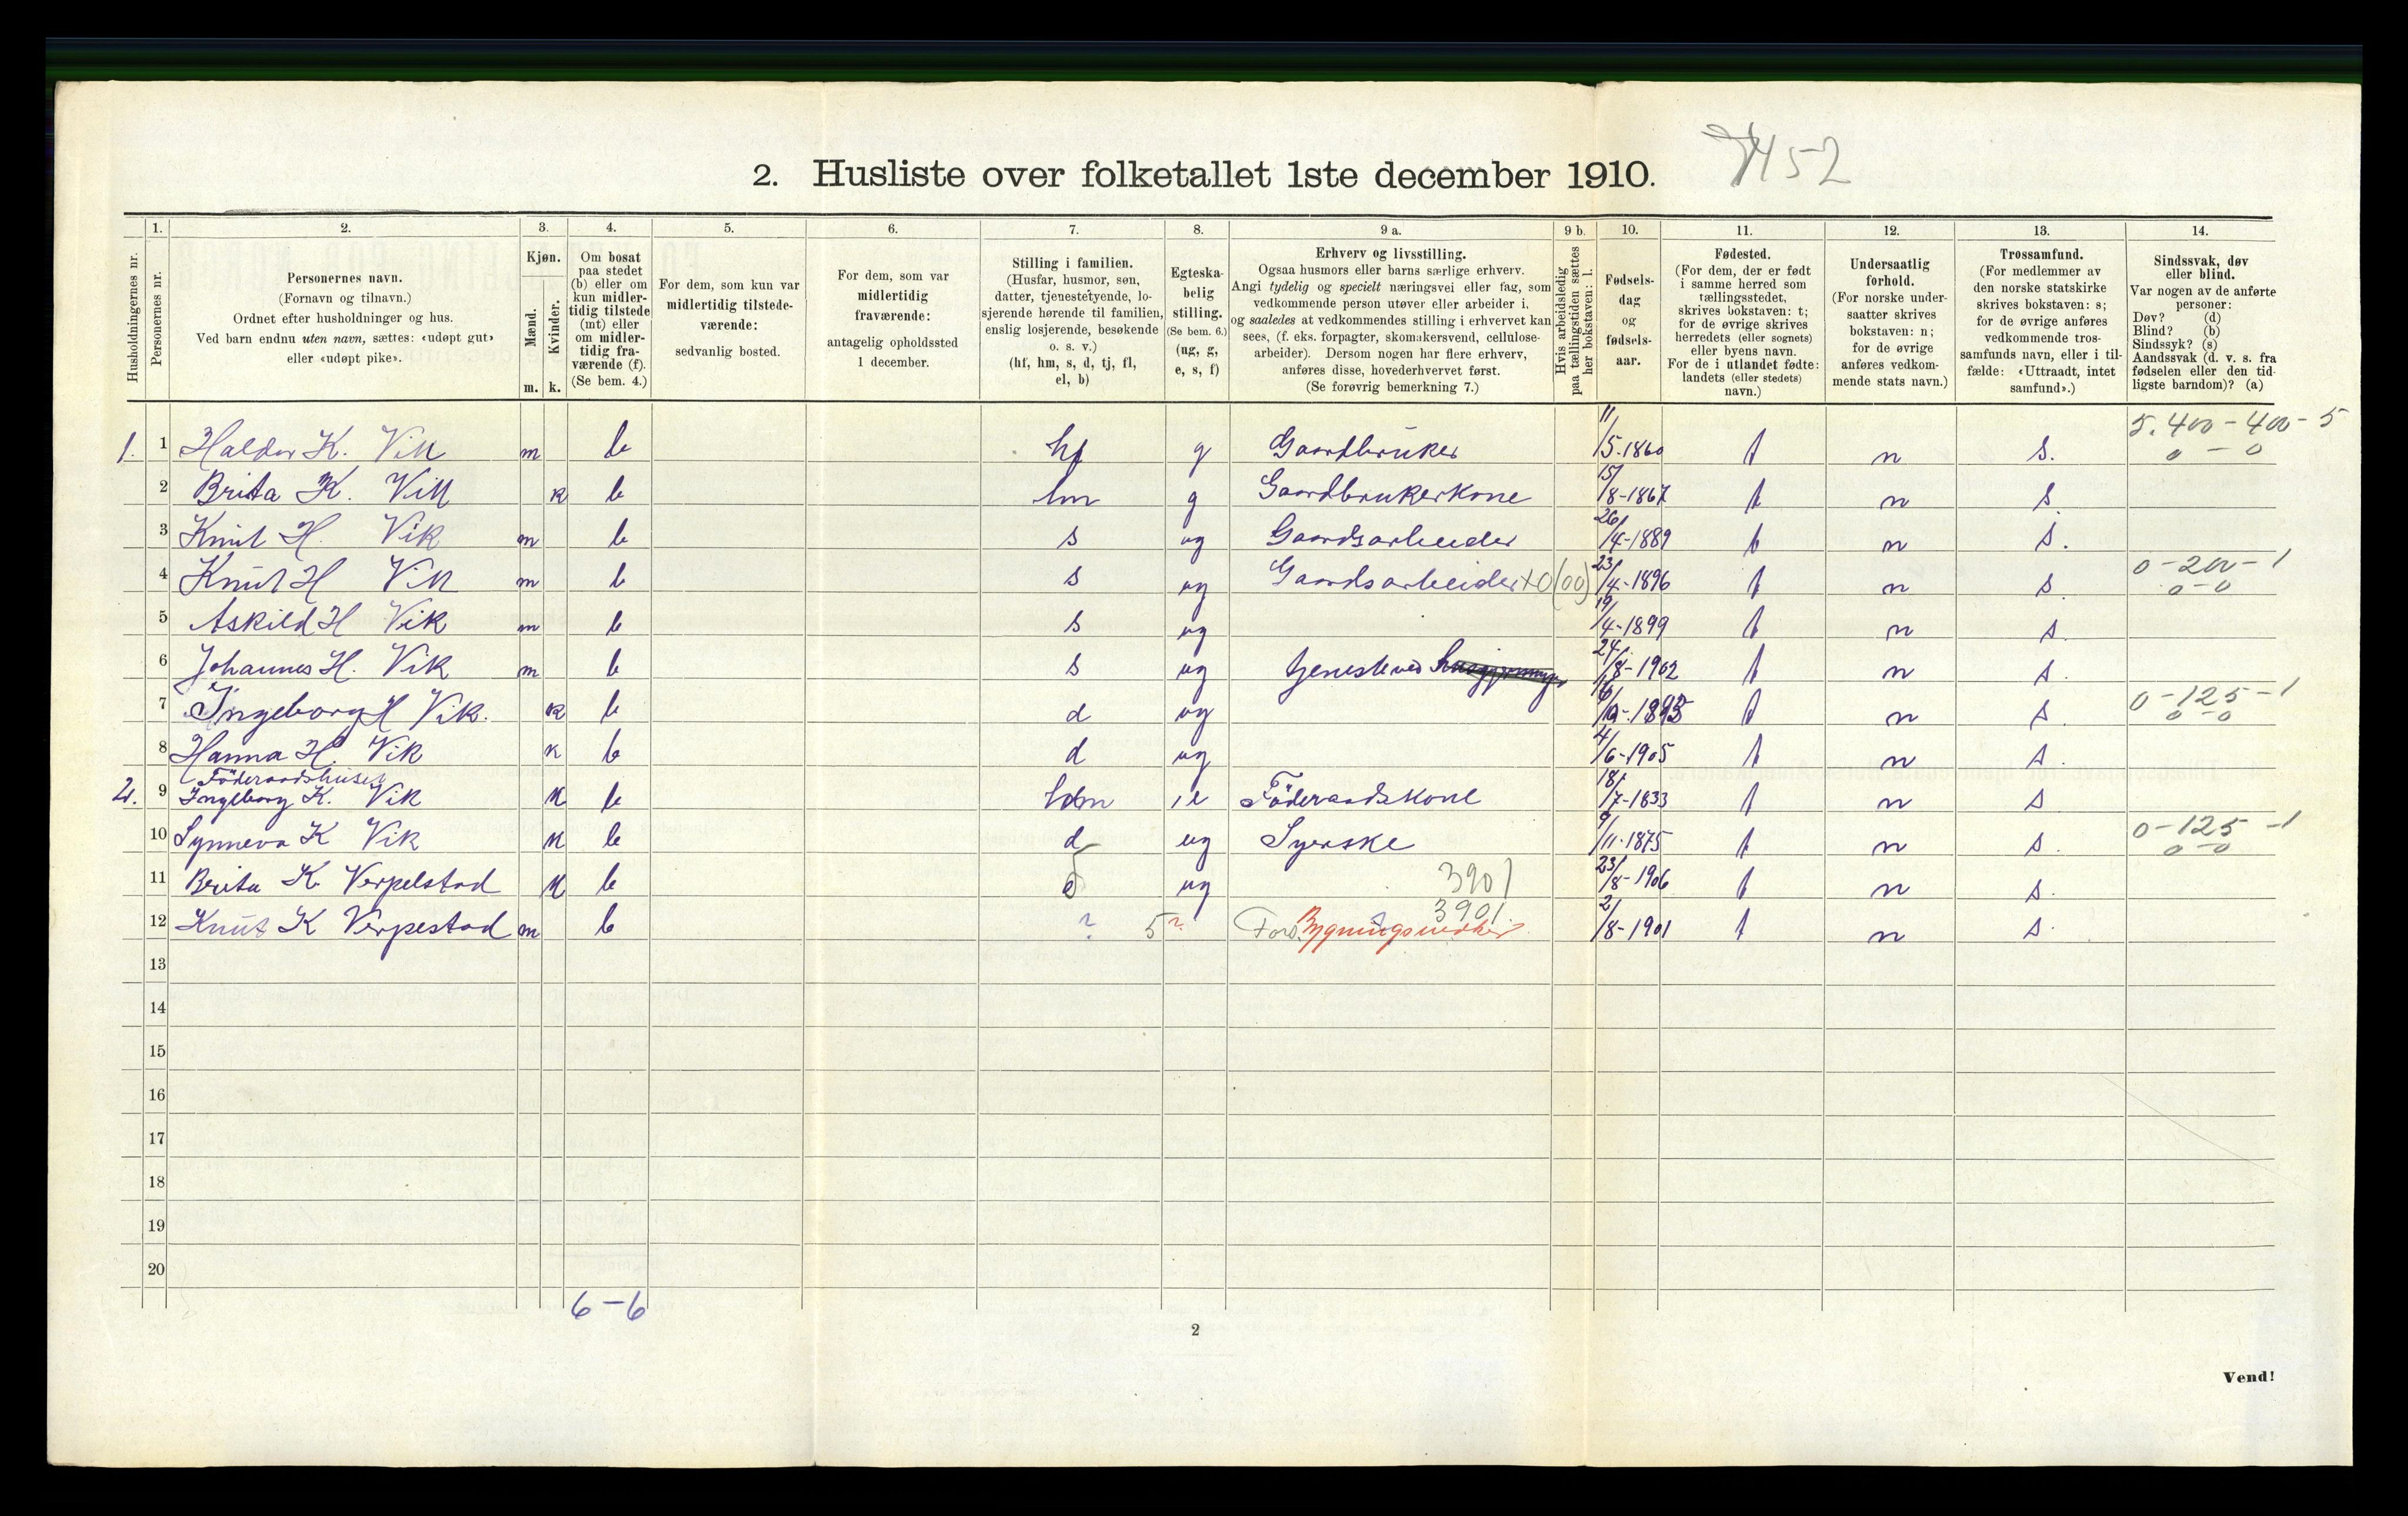 2. Husliste over folketallet 1ste december 1910.
452
Husholdningernes nr.
1.
Personernes nr.
2.
Personernes navn.
(Fornavn og tilnavn.)
Ordnet efter husholdninger og hus.
Ved barn endnu uten navn, sættes: «udøpt gut»
eller «udøpt pike».
3.
Kjøn.
Mænd.
Kvinder.
m. k.
4.
Om bosat
paa stedet
(b) eller om
kun midler-
tidig tilstede
(mt) eller
om midler-
tidig fra-
værende (f).
(Se bem. 4.)
5.
For dem, som kun var
midlertidig tilstede-
værende:
sedvanlig bosted.
6.
For dem, som var
midlertidig
fraværende:
antagelig opholdssted
1 december.
7.
Stilling i familien.
(Husfar, husmor, søn,
datter, tjenestetyende, lo-
sjerende hørende til familien,
enslig losjerende, besøkende
o. s. v.)
(hf, hm, s, d, tj, fl,
el, b)
8.
Egteska-
belig
stilling.
(Se bem. 6.)
(ug, g,
e, s, f)
9 a.
Erhverv og livsstilling.
Ogsaa husmors eller barns særlige erhverv.
Angi tydelig og specielt næringsvei eller fag, som
vedkommende person utøver eller arbeider i,
og saaledes at vedkommendes stilling i erhvervet kan
sees, (f. eks. forpagter, skomakersvend, cellulose-
arbeider). Dersom nogen har flere erhverv,
anføres disse, hovederhvervet først.
(Se forøvrig bemerkning 7.)
9 b.
Hvis arbeidsledig
paa tællingstiden sættes
her bokstaven: l.
10.
Fødsels-
dag
og
fødsels-
aar.
11.
Fødested.
(For dem, der er født
i samme herred som
tællingsstedet,
skrives bokstaven: t;
for de øvrige skrives
herredets (eller sognets)
eller byens navn.
For de i utlandet fødte:
landets (eller stedets)
navn.)
12.
Undersaatlig
forhold.
(For norske under-
saatter skrives
bokstaven: n;
for de øvrige
anføres vedkom-
mende stats navn.)
13.
Trossamfund.
(For medlemmer av
den norske statskirke
skrives bokstaven: s;
for de øvrige anføres
vedkommende tros-
samfunds navn, eller i til-
fælde: «Uttraadt, intet
samfund».)
14.
Sindssvak, døv
eller blind.
Var nogen av de anførte
personer:
Døv? (d)
Blind? (b)
Sindssyk? (s)
Aandssvak (d. v. s. fra
fødselen eller den tid-
ligste barndom)? (a)
1. 1 Haldor K. Vik m b hf g Gaardbruker 11/5-1860 t n s. 5.400-400-5 0-0
2 Brita K. Vik k b hm g Gaardbrukerkone 15/8-1867 t n s.
3 Knut H. Vik m b s ug Gaardsarbeider 26/4-1889 t n s.
4 Knut H Vik m b s ug Gaardsarbeider +0(00) 23/4-1896 t n s. 0-200-1 0-0
5 Askild H Vik m b s ug 19/4-1899 t n s.
6 Johannes H. Vik m b s ug tjeneste ved 24/8-1902 t n s.
7 Ingeborg H Vik. k b d ug t n s. 0-125-1 0-0
8 Hanna H. Vik k b d ug 4/6-1905 t n s.
Föderaadshuset
2. 9 Ingeborg K. Vik k b e Föderaadskone 18/7-1833 t n s
10 Synneva K Vik k b d ug Syerske 9/11-1875 t n s. 0-125-1 0-0
11 Brita K. Verpelstad k b ug 3901 23/8-1906 t n s.
12 Knut K Verpestad m b ? 5 ? 3901. Fors. 2/8-1901 t n s.
13
14
15
16
17
18
19
20
6-6
2
Vend!